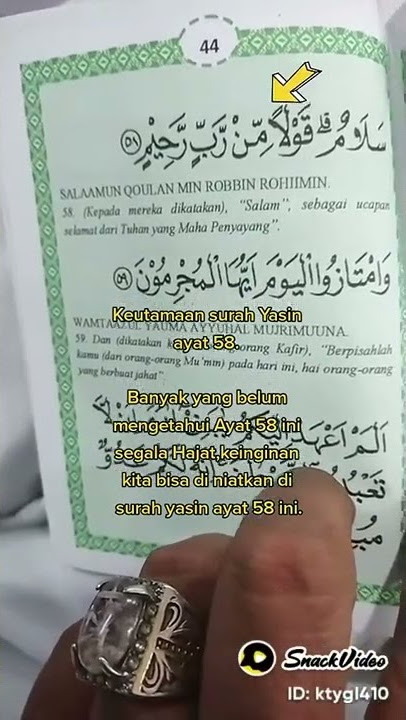 44
سَلَامٌ ۗ قَوْلًا مِّنْ رَّبٍّ رَّحِيْمٍ ﴿٥٨﴾
SALAAMUN QOULAN MIN ROBBIN ROHIIMIN.
58. (Kepada mereka dikatakan), "Salam", sebagai ucapan
selamat dari Tuhan yang Maha Penyayang".
وَامْتَازُوا الْيَوْمَ اَيُّهَا الْمُجْرِمُوْنَ ﴿٥٩﴾
Keutamaan surah Yasin
WAMTAAZUL YAUMA AYYUHAL MUJRIMUUNA.
ayat 58.
59. Dan (dikatakan orang Kafir), "Berpisahlah
kamu (dari orang-orang Mu'min) pada hari ini, hai orang-orang
yang berbuat jahat"
Banyak yang belum
mengetahui Ayat 58 ini
اَلَمْ اَعْهَدْ اِلَيْكُمْ
segala Hajat,keinginan
kita bisa di niatkan di
surah yasin ayat 58 ini.
SnackVideo
ID: ktygl410